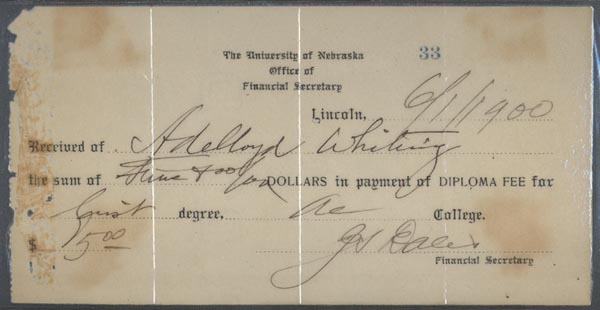 The University of Nebraska
33
Office of
Financial Secretary
Lincoln, 6/1/1900
Received of Adelloyd Whiting
the sum of Five & 00/100 DOLLARS in payment of DIPLOMA FEE for
first degree, Ac College.
$ 5.00
J S Dales
Financial Secretary